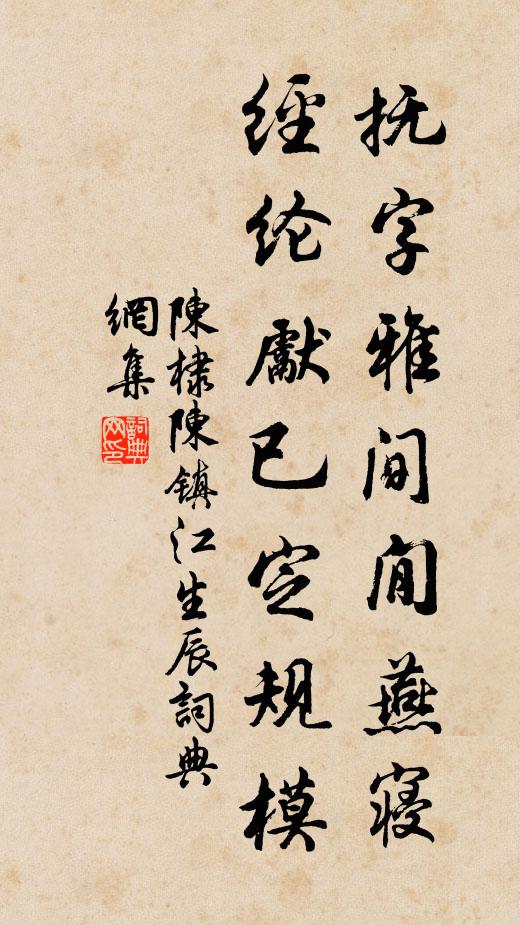 抚字雅间闲燕寝
經纶獻已定规模
陳棣陳镇江生辰詞典
網集
詞典
网印